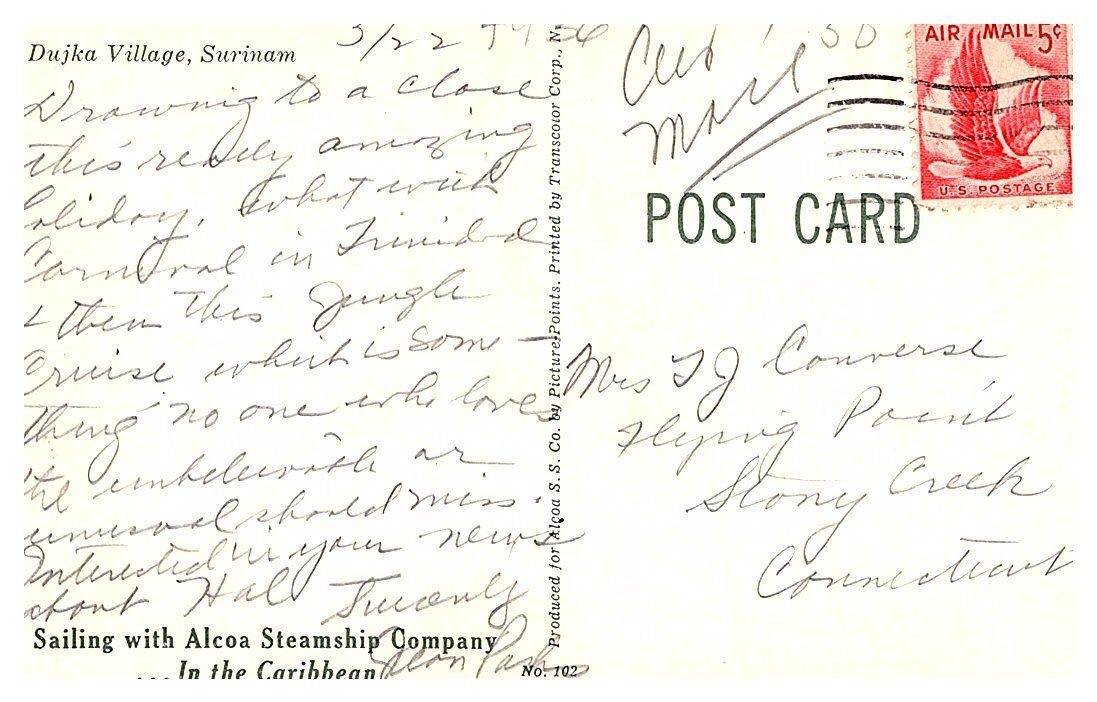 Dujka Village, Surinam
3/22
Drawing to a close
this really amazing
holiday, what with
Carnival in Trinidad
& then this Jungle
Cruise which is some-
thing no one who loves
the unbelievable or
unusual should miss.
Interested in your news
about Hal Sincerely
Sailing with Alcoa Steamship Company
... In the Caribbean
No. 102
Produced for Alcoa S. S. Co. by Picture Points. Printed by Transcolor Corp., N
Air
Mail
AIR MAIL 5¢
U.S. POSTAGE
POST CARD
Mrs T J Converse
Flying Point
Stony Creek
Connecticut